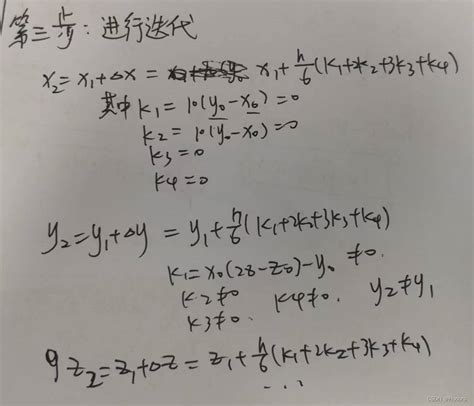 第三步：进行迭代
x₂=x₁+Δx = x₁+h/6(k₁+2k₂+3k₃+k₄)
其中 k₁=10(y₀-x₀)=0
k₂=10(y₀-x₀)=0
k₃=0
k₄=0
y₂=y₁+Δy = y₁+h/6(k₁+2k₂+3k₃+k₄)
k₁=x₀(28-z₀)-y₀ ≠0.
k₂≠0 k₄≠0. y₂≠y₁
k₃≠0.
9 z₂=z₁+Δz=z₁+h/6(k₁+2k₂+3k₃+k₄)
...